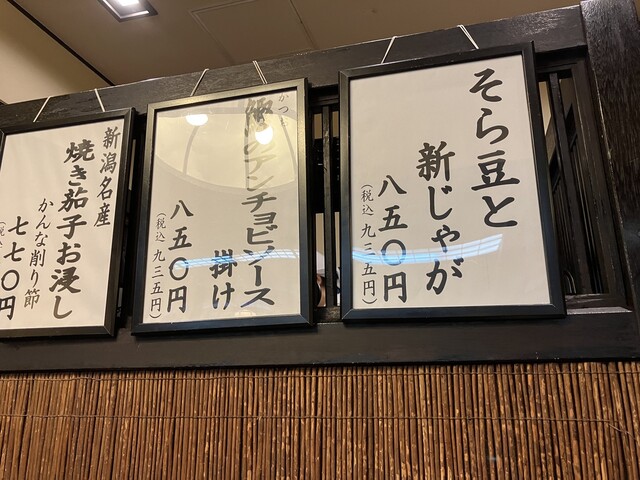 そら豆と
新じゃが
八五〇円
（税込 九三五円）
かつお
鰹のアンチョビソース
掛け
八五〇円
（税込 九三五円）
新潟名産
焼き茄子お浸し
かんな削り節
七七〇円
（税込